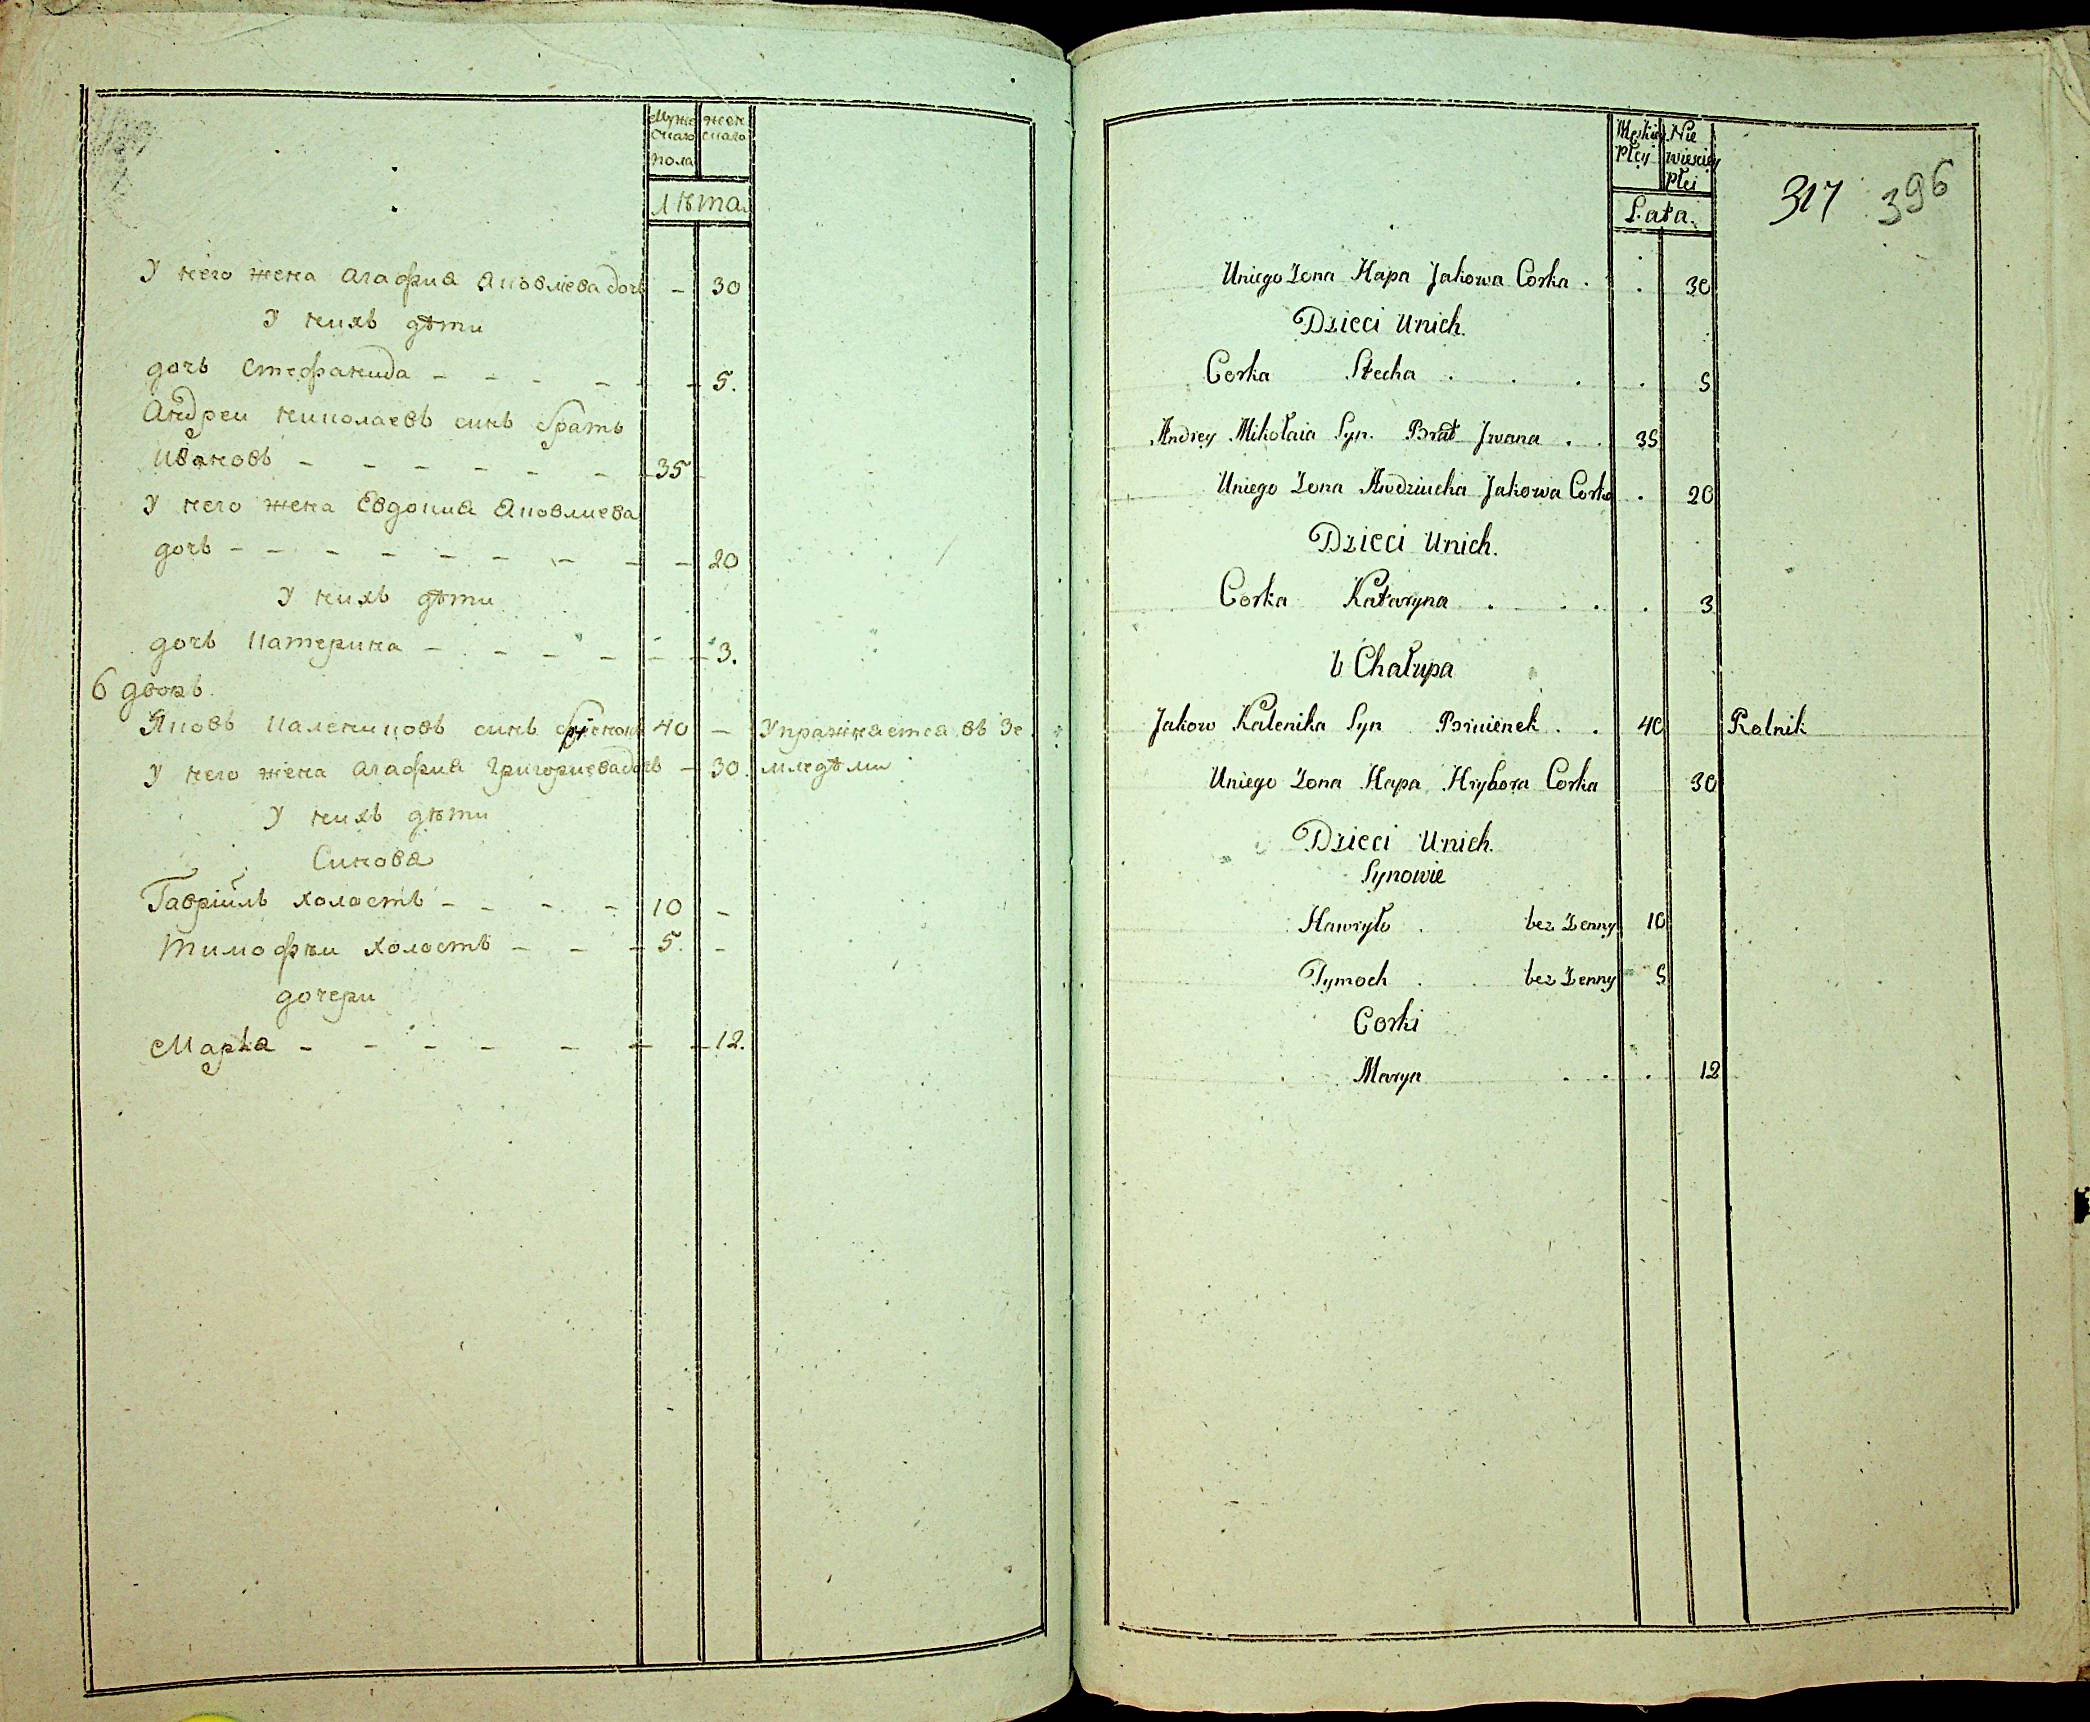 Мужескаго пола
женскаго
Лѣта
У него жена Агафиа Яковлева дочь - 30
У нихъ дѣти
дочь Стефанида - - - - - - 5.
Андреи николаевъ синъ братъ
Ивановъ - - - - - - - 35
У него жена Евдокиа Яковлиева
дочь - - - - - - - - - 20
У нихъ дѣти
дочь Катерина - - - - - - 3.
6 дворъ.
Яковъ Калениковъ синъ 40 - Упражнается въ Зе
У него жена Агафиа Григориева дочь - 30. мледѣлии
У нихъ дѣти
Синова
Гавріилъ холостъ - - - - 10 -
Тимофѣи холостъ - - - 5. -
дочери
Марья - - - - - - - 12.
Męskiey Płey
Niewiesciey Płei
Lata.
317 396
Uniego Zona Hapa Jakowa Corka . . 30
Dzieci Unich.
Corka Stecha . . . . 5
Andrey Mikołaia Syn. Brat Jwana . . 35
Uniego Zona Awdziucha Jakowa Corka . 20
Dzieci Unich.
Corka Kataryna . . . . 3
6 Chałupa
Jakow Kalenika Syn . . 40 Rolnik
Uniego Zona Hapa Hrybora Corka 30
Dzieci Unich.
Synowie
Hawryło . bez Zenny 10
Tymoch . . bez Zenny 5
Corki
Marya . . . 12